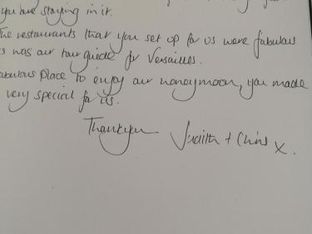 you are staying in it.
The restaurants that you set up for us were fabulous
s was our tour guide for Versailles.
abulous place to enjoy our honeymoon, you made
very special for us.
Thankyou Judith + Chris x.